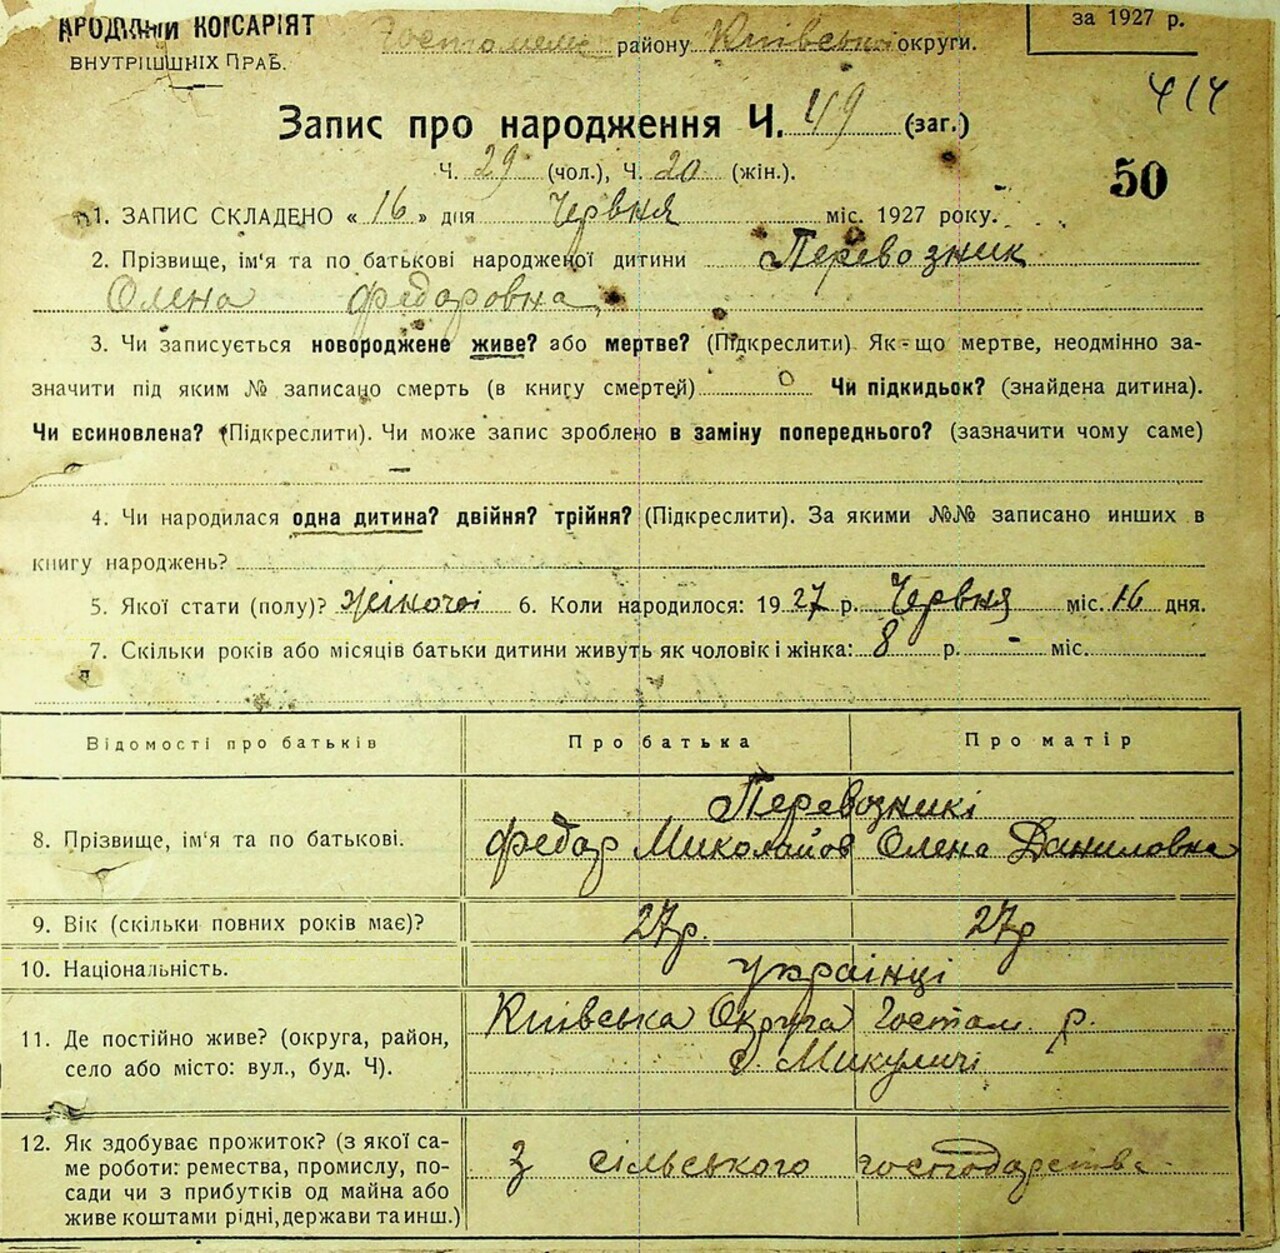 НАРОДНІЙ КОМІСАРІЯТ
ВНУТРІШНІХ СПРАВ.
Гостомельс району Київської округи.
за 1927 р.
414
Запис про народження Ч. 49 (заг.)
Ч. 29 (чол.), Ч. 20 (жін.).
50
1. ЗАПИС СКЛАДЕНО « 16 » дня Червня міс. 1927 року.
2. Прізвище, ім'я та по батькові народженої дитини Перевозник
Олена Федоровна
3. Чи записується новороджене живе? або мертве? (Підкреслити). Як-що мертве, неодмінно за-
значити під яким № записано смерть (в книгу смертей) 0 Чи підкидьок? (знайдена дитина).
Чи всиновлена? (Підкреслити). Чи може запис зроблено в заміну попереднього? (зазначити чому саме)
—
4. Чи народилася одна дитина? двійня? трійня? (Підкреслити). За якими №№ записано инших в
книгу народжень?
5. Якої стати (полу)? жіночої 6. Коли народилося: 1927 р. Червня міс. 16 дня.
7. Скільки років або місяців батьки дитини живуть як чоловік і жінка: 8 р. - міс.
Відомості про батьків Про батька Про матір
Перевозникі
8. Прізвище, ім'я та по батькові. Федор Миколайов Олена Даниловна
9. Вік (скільки повних років має)? 27р. 27р
10. Національність. українці
11. Де постійно живе? (округа, район, Київська Округа Гостом. р.
село або місто: вул., буд. Ч). с. Микуличі
12. Як здобуває прожиток? (з якої са-
ме роботи: ремества, промислу, по- З сільського господарства
сади чи з прибутків од майна або
живе коштами рідні, держави та инш.)